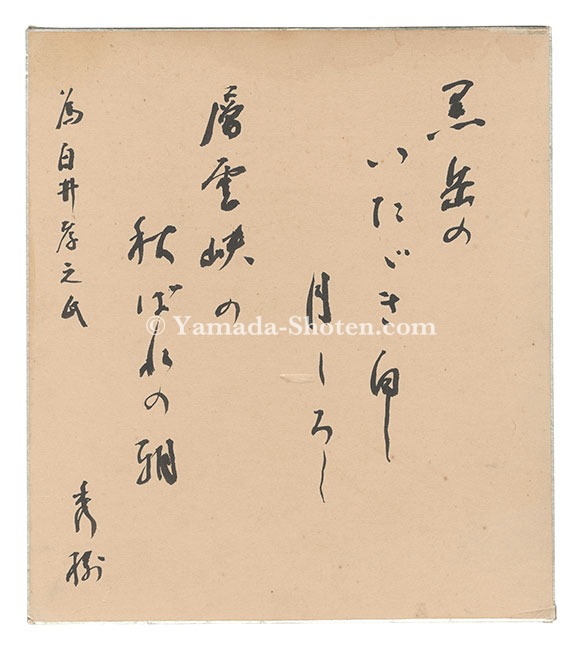 黒岳の
いたゞき白し
月しろし
層雲峡の
秋ばれの朝
秀樹
為白井之氏
© Yamada-Shoten.com